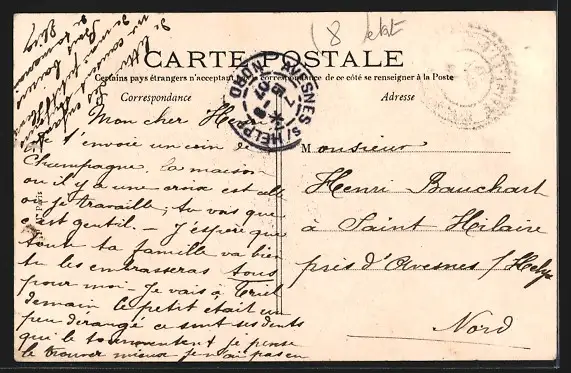 ( 8 
CARTE POSTALE
Certains pays étrangers n'acceptant pas la correspondance de ce côté se renseigner à la Poste
Correspondance
Adresse
AVESNES S/ HELPE
NORD
Mon cher Henri
t'envoie un coin de
Champagne, la maison
ou il y a une croix est celle
ou je travaille; tu vois que
c'est gentil. — J'espère que
toute ta famille va bien
tu les embrasseras tous
pour moi — Je vais à Triel
demain le petit était un
peu dérangé ce sont ses dents
qui le tourmentent & je pense
le trouver mieux je n'ai pas eu
Monsieur
Henri Bauchart
à Saint Hilaire
près d'Avesnes s/Helpe
Nord